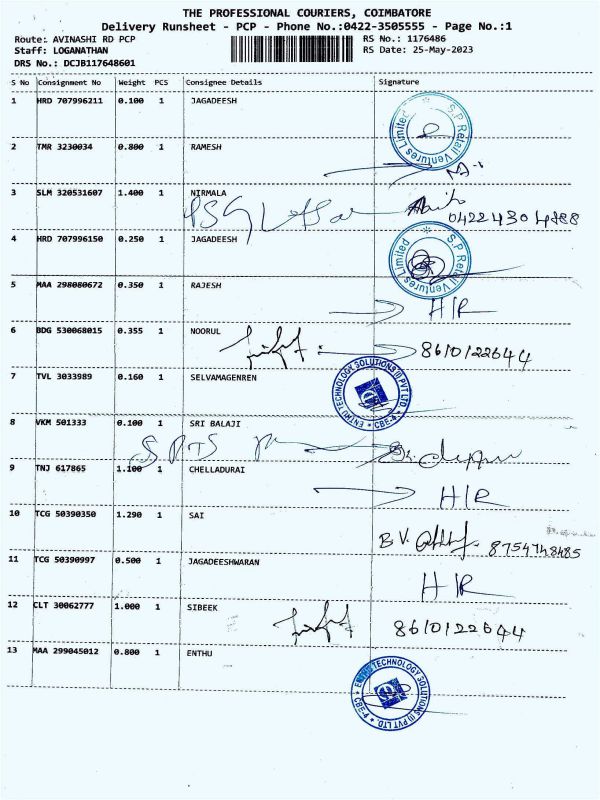 THE PROFESSIONAL COURIERS, COIMBATORE
Delivery Runsheet - PCP - Phone No.:0422-3505555 - Page No.:1
Route: AVINASHI RD PCP RS No.: 1176486
Staff: LOGANATHAN RS Date: 25-May-2023
DRS No.: DCJB117648601
S No Consignment No Weight PCS Consignee Details Signature
1 HRD 707996211 0.100 1 JAGADEESH
S.P Retail Ventures Limited
2 TMR 3230034 0.800 1 RAMESH
3 SLM 320531607 1.400 1 NIRMALA
0422 4304288
4 HRD 707996150 0.250 1 JAGADEESH
S.P Retail Ventures Limited
5 MAA 298080672 0.350 1 RAJESH
H/R
6 BDG 530068015 0.355 1 NOORUL
8610122644
7 TVL 3033989 0.160 1 SELVAMAGENREN
ENTHU TECHNOLOGY SOLUTIONS (I) PVT LTD
CBE-4
8 VKM 501333 0.100 1 SRI BALAJI
9 TNJ 617865 1.100 1 CHELLADURAI
H/R
10 TCG 50390350 1.290 1 SAI
B.V. 8754748485
11 TCG 50390997 0.500 1 JAGADEESHWARAN
H/R
12 CLT 30062777 1.000 1 SIBEEK
8610122644
13 MAA 299045012 0.800 1 ENTHU
ENTHU TECHNOLOGY SOLUTIONS (I) PVT LTD
CBE-4